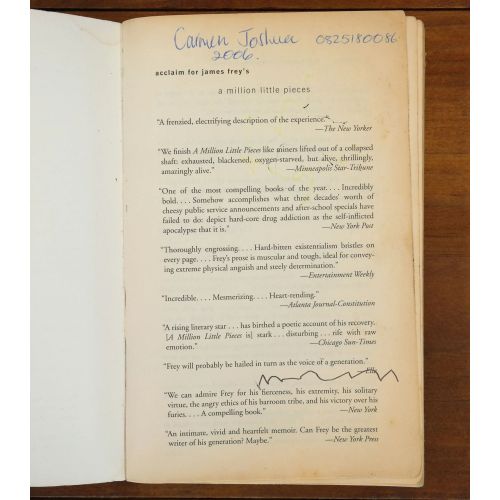 Carmen Joshua 0825180086
2006.
acclaim for james frey's
a million little pieces
"A frenzied, electrifying description of the experience."
—The New Yorker
"We finish A Million Little Pieces like miners lifted out of a collapsed
shaft: exhausted, blackened, oxygen-starved, but alive, thrillingly,
amazingly alive."
—Minneapolis Star-Tribune
"One of the most compelling books of the year. . . . Incredibly
bold. . . . Somehow accomplishes what three decades' worth of
cheesy public service announcements and after-school specials have
failed to do: depict hard-core drug addiction as the self-inflicted
apocalypse that it is."
—New York Post
"Thoroughly engrossing. . . . Hard-bitten existentialism bristles on
every page. . . . Frey's prose is muscular and tough, ideal for convey-
ing extreme physical anguish and steely determination."
—Entertainment Weekly
"Incredible. . . . Mesmerizing. . . . Heart-rending."
—Atlanta Journal-Constitution
"A rising literary star . . . has birthed a poetic account of his recovery.
[A Million Little Pieces is] stark . . . disturbing . . . rife with raw
emotion."
—Chicago Sun-Times
"Frey will probably be hailed in turn as the voice of a generation."
—Elle
"We can admire Frey for his fierceness, his extremity, his solitary
virtue, the angry ethics of his barroom tribe, and his victory over his
furies. . . . A compelling book."
—New York
"An intimate, vivid and heartfelt memoir. Can Frey be the greatest
writer of his generation? Maybe."
—New York Press